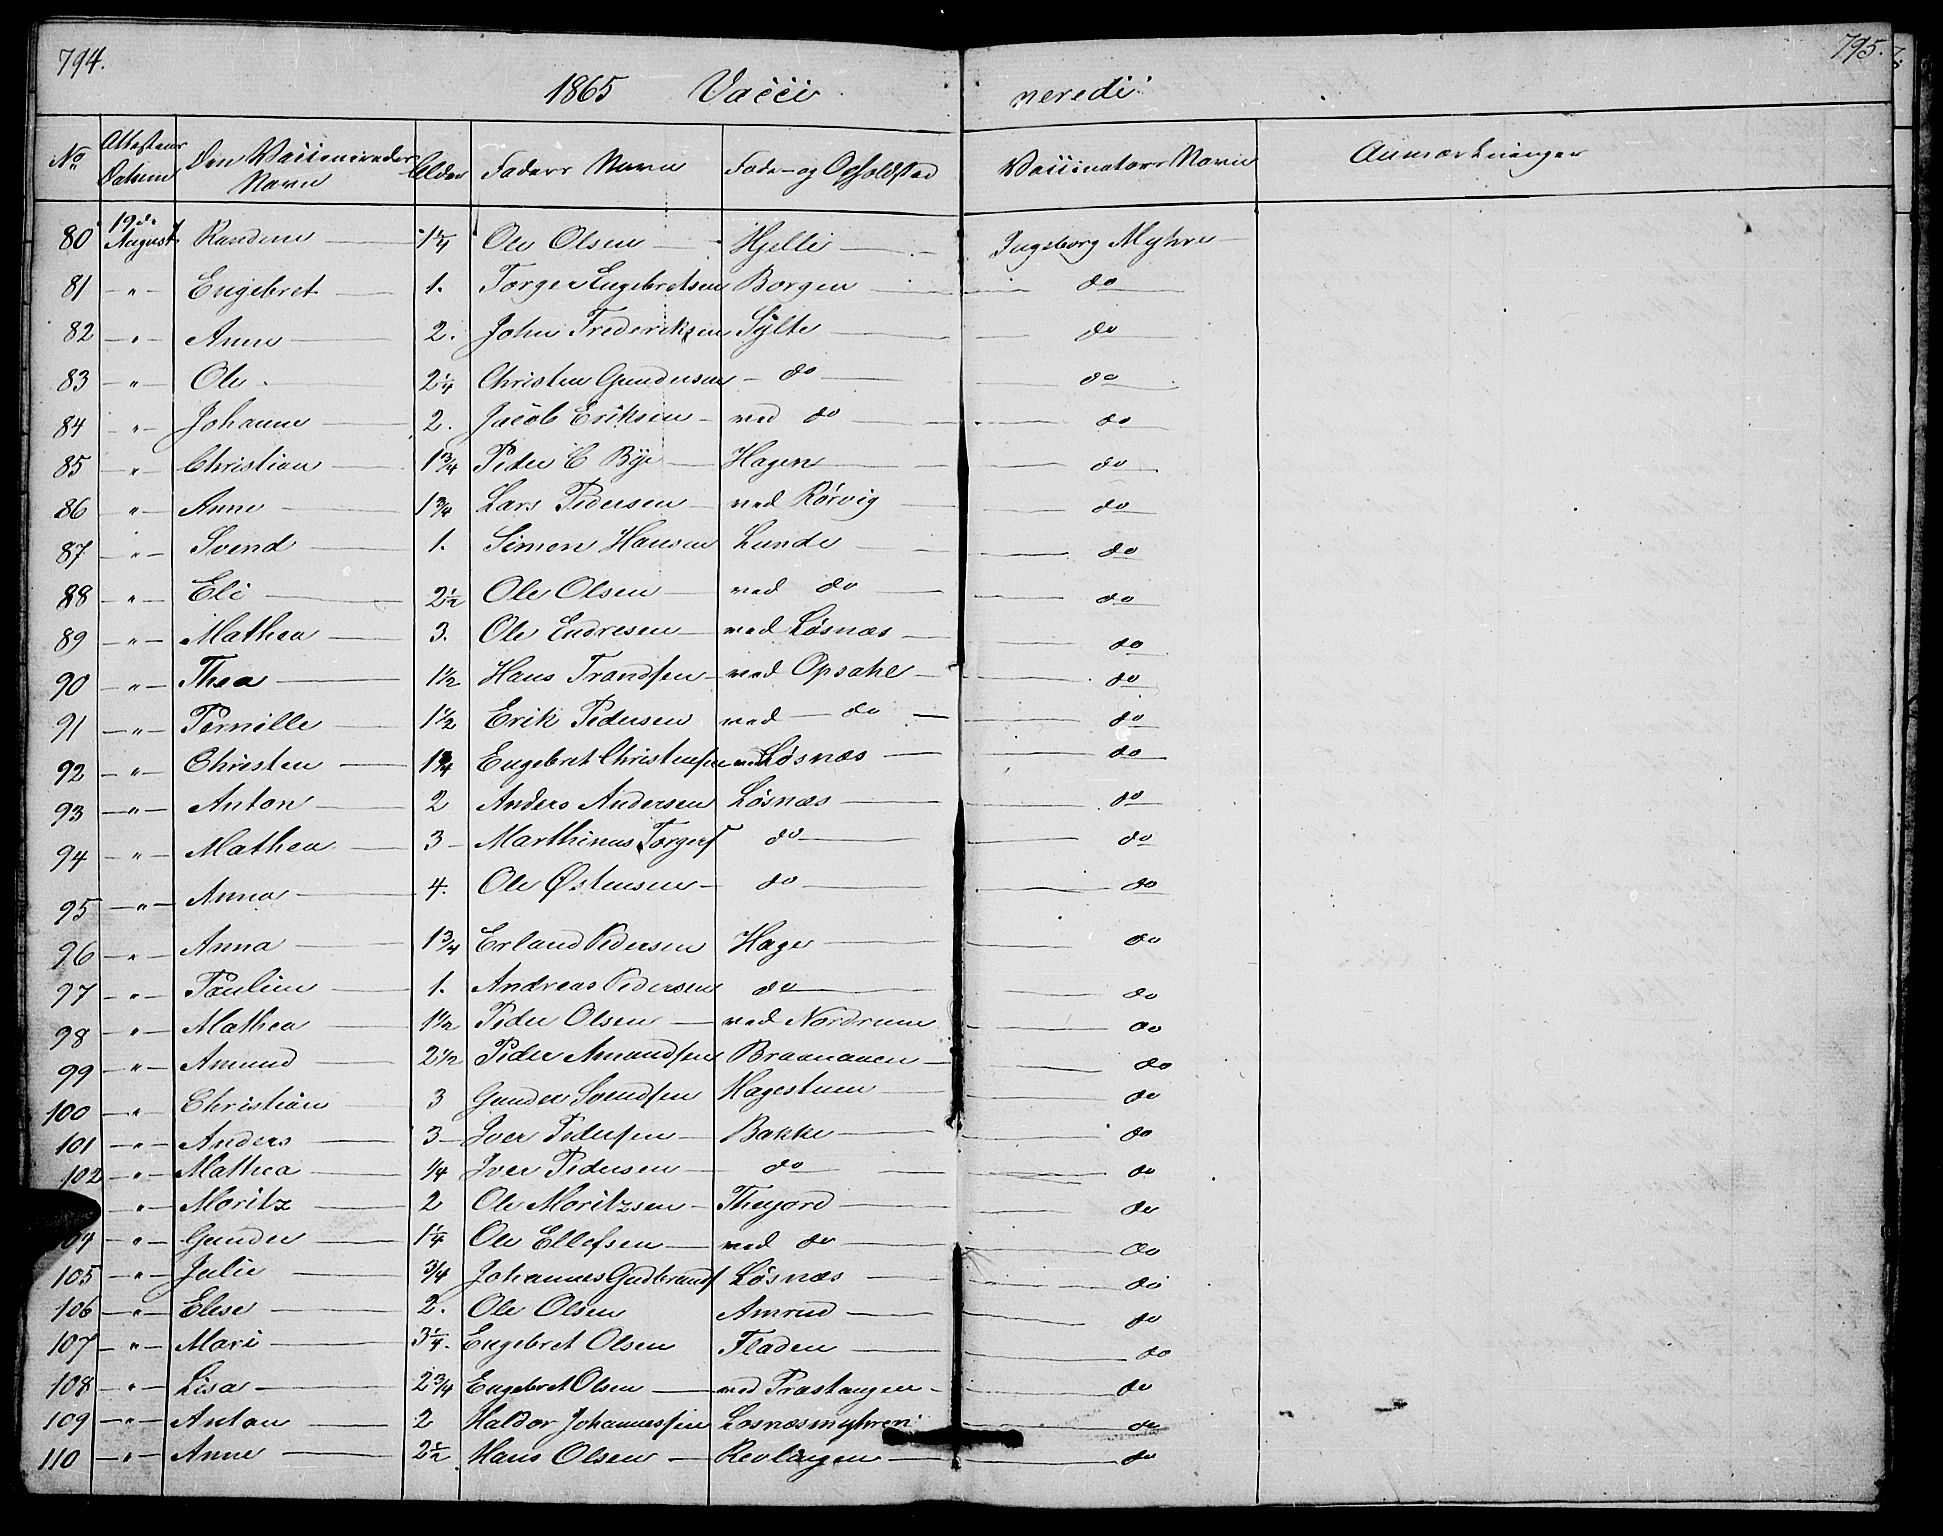 794. 795.
1865 Vacci neredi
No Attestens Datum Den Vaccineredes Navn Alder Faders Navn Føde- og Opholdsted Vaccinators Navn Anmærkninger
80 19de August Randine 1 1/4 Ole Olsen Hjelle Ingeborg Myhre
81 " Engebret 1. Torger Engebretsen Borgen do
82 " Anne 2. John Frederiksen Sylte do
83 " Ole 2 1/4 Christen Gundersen do do
84 " Johanne 2. Jacob Eriksen ved do do
85 " Christian 1 3/4 Peder C Bye Hagen do
86 " Anne 1 3/4 Lars Pedersen ved Rørvig do
87 " Svend 1. Simen Hansen Lunde do
88 " Eli 2 1/2 Ole Olsen ved do do
89 " Mathea 3. Ole Endresen ved Løsnæs do
90 " Thea 1 1/2 Hans Trandsen ved Opsahl do
91 " Pernille 1 1/2 Erik Pedersen ved do do
92 " Christen 1 3/4 Engebret Christensen ved Løsnæs do
93 " Anton 2 Anders Andersen Løsnæs do
94 " Mathea 3 Marthinus Torgers do do
95 " Anna 4. Ole Østensen do do
96 " Anna 1 3/4 Erland Pedersen Hage do
97 " Pauline 1. Andreas Pedersen do do
98 " Mathea 1 1/2 Peder Olsen ved Nordrum do
99 " Amund 2 1/2 Peder Amundsen Braanaaen do
100 " Christian 3 Gunder Svendsen Hagestuen do
101 " Anders 3 Iver Pedersen Bakke do
102 " Mathea 1/4 Iver Pedersen do do
" Moritz 2 Ole Moritzsen Thejord do
04 " Gunder 1 1/4 Ole Ellefsen ved do do
105 " Julie 3/4 Johannes Gudbrands Løsnæs do
106 " Elise 2. Ole Olsen Amrud do
107 " Mari 3 1/4. Engebret Olsen Fladen do
108 " Lisa 2 3/4 Engebret Olsen ved Præstangen do
109 " Anton 2 Haldor Johannessen Losnæsmyhren do
110 " Anne 2 1/2 Hans Olsen Revlangen do